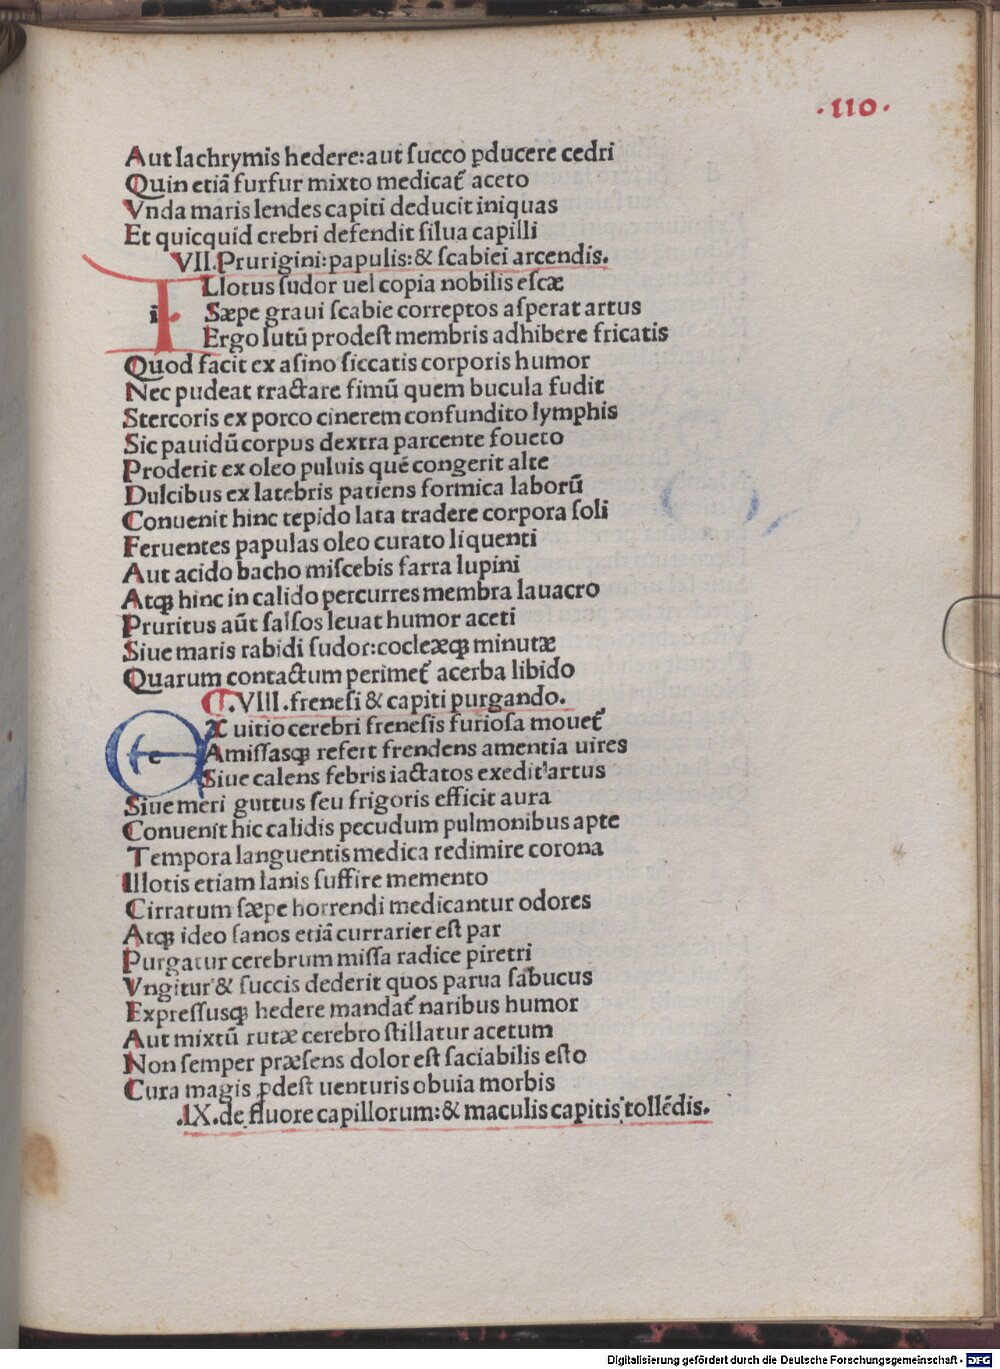 ·110·
Aut lachrymis hedere:aut ſucco ꝓducere cedri
Quin etiã furfur mixto medicat᷑ aceto
Vnda maris lendes capiti deducit iniquas
Et quicquid crebri defendit ſilua capilli
VII.Prurigini:papulis:& ſcabiei arcendis.
i Llotus ſudor uel copia nobilis eſcæ
Sæpe graui ſcabie correptos aſperat artus
Ergo lutũ prodeſt membris adhibere fricatis
Quod facit ex aſino ſiccatis corporis humor
Nec pudeat tractare fimũ quem bucula fudit
Stercoris ex porco cinerem confundito lymphis
Sic pauidũ corpus dextra parcente foueto
Proderit ex oleo puluis quẽ congerit alte
Dulcibus ex latebris patiens formica laborũ
Conuenit hinc tepido lata tradere corpora ſoli
Feruentes papulas oleo curato liquenti
Aut acido bacho miſcebis farra lupini
Atqꝫ hinc in calido percurres membra lauacro
Pruritus aũt ſalſos leuat humor aceti
Siue maris rabidi ſudor:cocleæqꝫ minutæ
Quarum contactum perimet᷑ acerba libido
.VIII.freneſi & capiti purgando.
e X uitio cerebri freneſis furioſa mouet᷑
Amiſſasqꝫ refert frendens amentia uires
Siue calens febris iactatos exedit'artus
Siue meri guttus ſeu frigoris efficit aura
Conuenit hic calidis pecudum pulmonibus apte
Tempora languentis medica redimire corona
Illotis etiam lanis ſuffire memento
Cirratum ſæpe horrendi medicantur odores
Atqꝫ ideo ſanos etiã currarier eſt par
Purgatur cerebrum miſſa radice piretri
Vngitur'& ſuccis dederit quos parua ſãbucus
Expreſſusqꝫ hedere mandat᷑ naribus humor
Aut mixtũ rutæ cerebro ſtillatur acetum
Non ſemper præſens dolor eſt ſaciabilis eſto
Cura magis ꝓdeſt uenturis obuia morbis
.IX.de fluore capillorum:& maculis capitis tollẽdis.
Digitalisierung gefördert durch die Deutsche Forschungsgemeinschaft - DFG